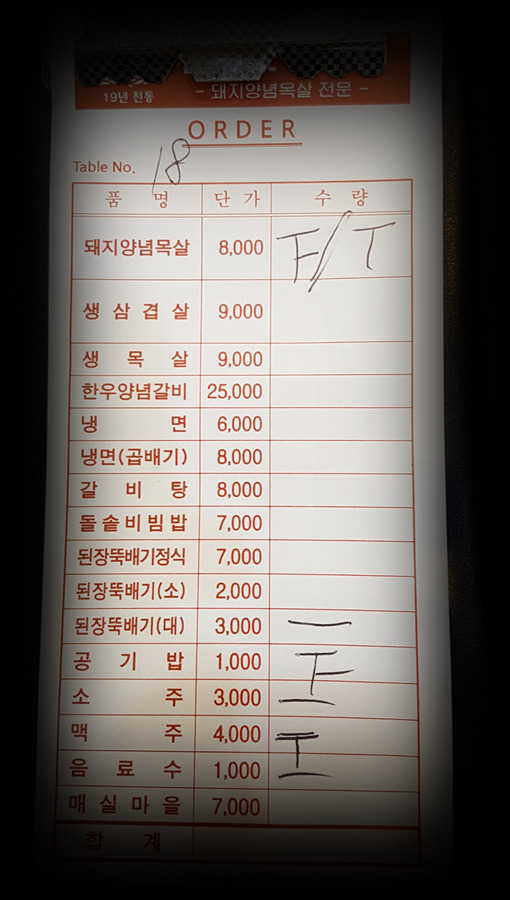 19년 전통 - 돼지양념목살 전문 -
ORDER
Table No. 18
품 명 단 가 수 량
돼지양념목살 8,000
생 삼 겹 살 9,000
생 목 살 9,000
한우양념갈비 25,000
냉 면 6,000
냉면(곱배기) 8,000
갈 비 탕 8,000
돌솥비빔밥 7,000
된장뚝배기정식 7,000
된장뚝배기(소) 2,000
된장뚝배기(대) 3,000 一
공 기 밥 1,000
소 주 3,000 一
맥 주 4,000
음 료 수 1,000 一
매 실 마 을 7,000
합 계